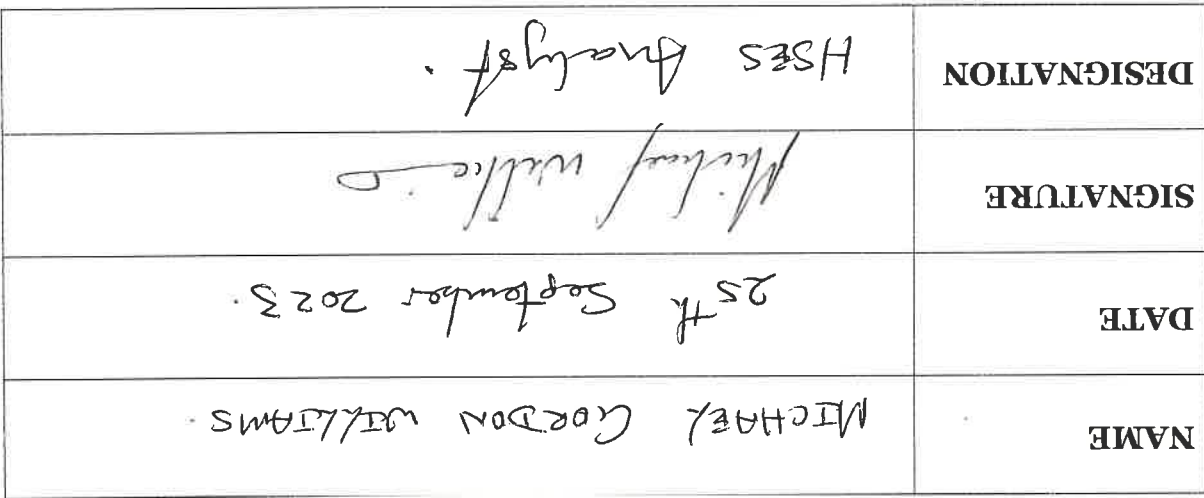 NAME MICHAEL GORDON WILLIAMS.
DATE 25th September 2023.
SIGNATURE Michael Willia
DESIGNATION HSES Analyst.